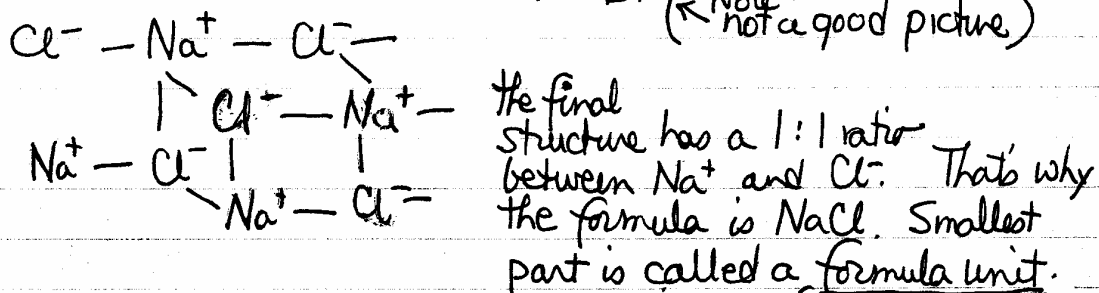 Now
(↖ not a good picture)
Cl⁻ — Na⁺ — Cl⁻ —
Cl⁻ — Na⁺ —
Na⁺ — Cl⁻
Na⁺ — Cl⁻ —
the final
structure has a 1:1 ratio
between Na⁺ and Cl⁻. That's why
the formula is NaCl. Smallest
part is called a formula unit.